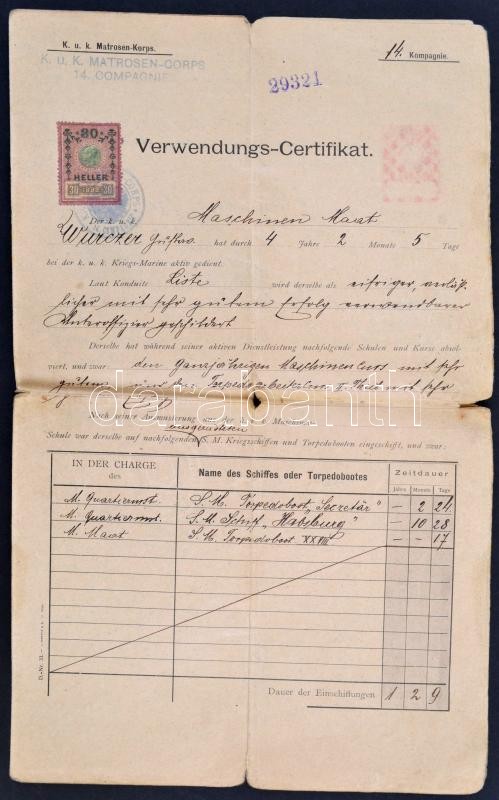 K. u. k. Matrosen-Korps.
14. Kompagnie.
K. u. K. MATROSEN-CORPS
14. COMPAGNIE
29321
80
HELLER
30 30
Verwendungs-Certifikat.
Der k. u. k. Maschinen Maat
Wurczer Gustav hat durch 4 Jahre 2 Monate 5 Tage
bei der k. u. k. Kriegs-Marine aktiv gedient.
Laut Conduite Liste wird derselbe als eifriger, verläß-
licher mit sehr gutem Erfolg verwendbarer
Unteroffizier geschildert
Derselbe hat während seiner aktiven Dienstleistung nachfolgende Schulen und Kurse absol-
viert, und zwar: den ganzjährigen Maschinencurs mit sehr
gutem und den mit sehr
Nach seiner Ausmusterung aus der
Schule war derselbe auf nachfolgenden S. M. Kriegsschiffen und Torpedobooten eingeschifft, und zwar:
IN DER CHARGE des
Name des Schiffes oder Torpedobootes
Zeitdauer
Jahre Monate Tage
M. Quartiermst. S. M. Torpedoboot „Secretär" – 2 24
M. Quartiermst. S. M. Schiff „Habsburg" – 10 28
M. Maat S. M. Torpedoboot XXVIII – – 17
Dauer der Einschiffungen 1 2 9
darabanth